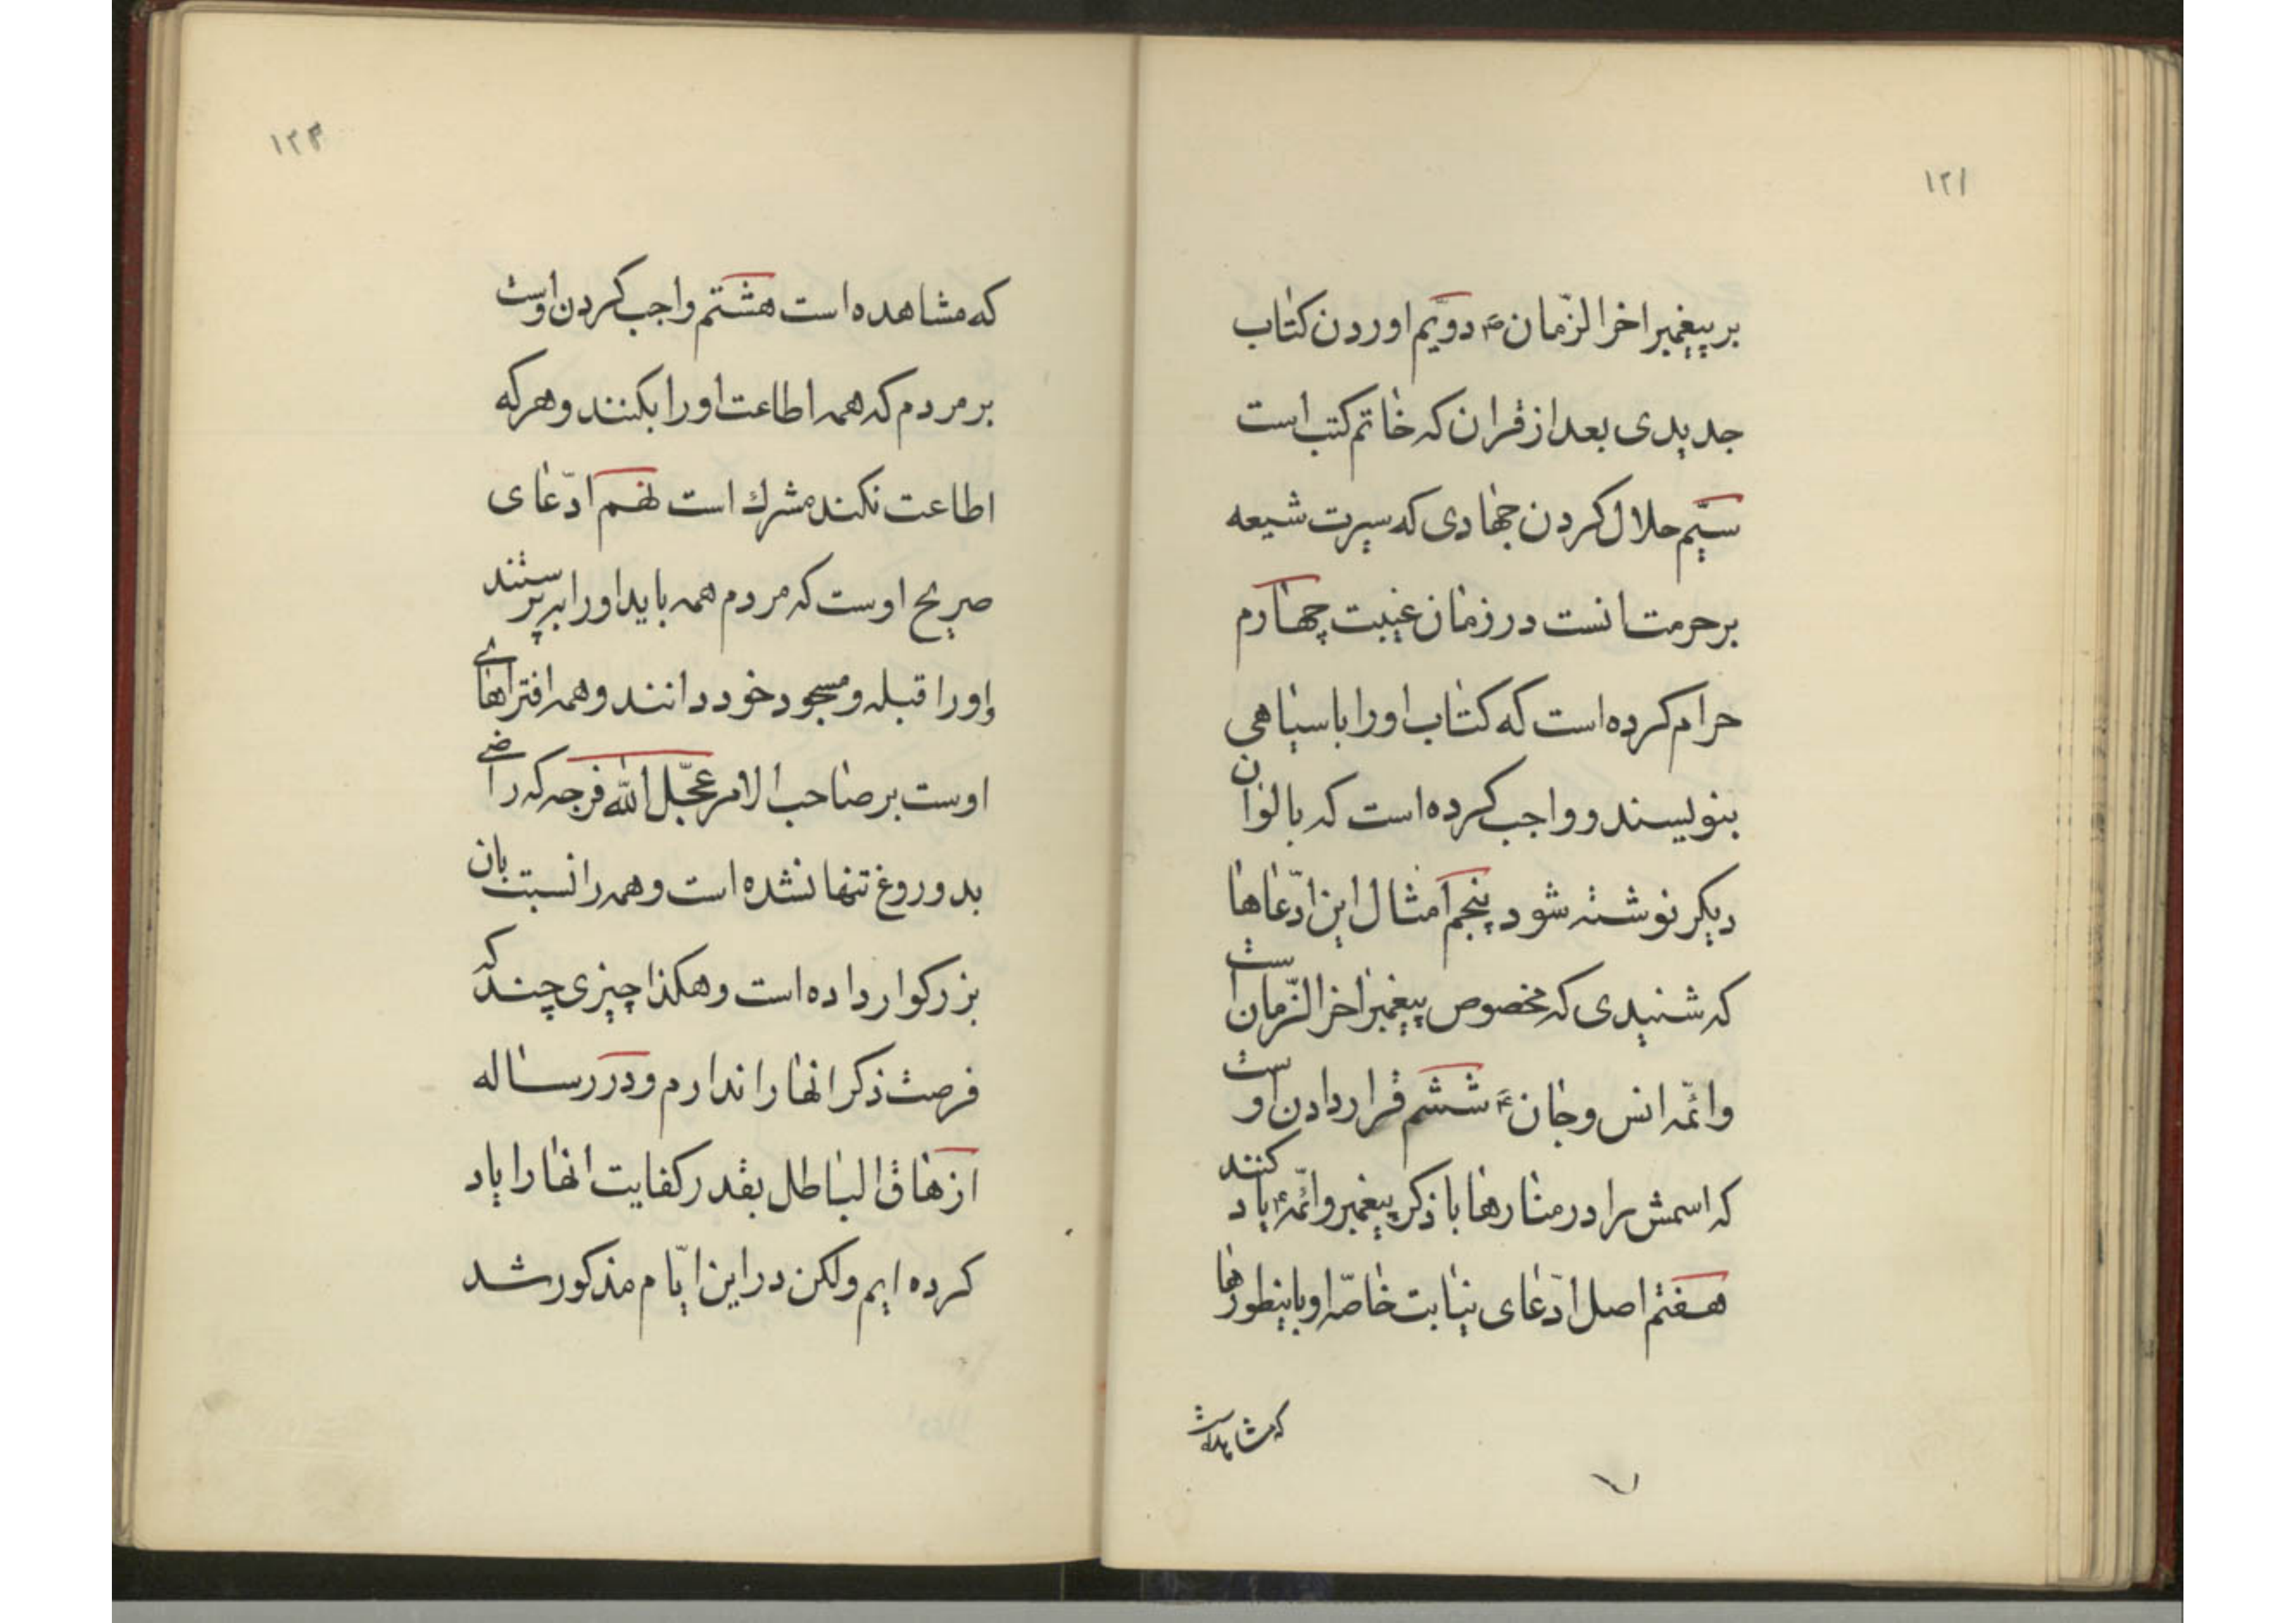 ۱۲۱
بر پیغمبر اخر الزّمان ص دویّم اوردن کتاب
جدیدی بعد از قران که خاتم کتب است
سیّم حلال کردن جهادی که سیرت شیعه
بر حرمت انست در زمان غیبت چهارم
حرام کرده است که کتاب او را باسیاهی
بنویسند و واجب کرده است که بالوان
دیکر نوشته شود پنجم امثال این ادّعاها
که شنیدی که مخصوص پیغمبر اخر الزّمان است
وائمّه انس وجان ع ششم قرار دادن اوست
که اسمش را در منارها با ذکر پیغمبر وائمّه ع یاد کنند
هفتم اصل ادّعای نیابت خاصّه او باینطورها
که مشاهده است
۱۲۳
که مشاهده است هشتم واجب کردن اوست
بر مردم که همه اطاعت او را بکنند و هر که
اطاعت نکند مشرك است نهم ادّعای
صریح اوست که مردم همه باید او را بپرستند
واو را قبله و مسجود خود دانند و همه افتراهای
اوست بر صاحب الامر عجّل الله فرجه که راضی
بدوروغ تنها نشده است و همه را نسبت بان
بزرکوار داده است و هکذا چیزی چند که
فرصت ذکر انها را ندارم و در رساله
ازهاق الباطل بقدر کفایت انها را یاد
کرده ایم ولکن در این ایّام مذکور شد